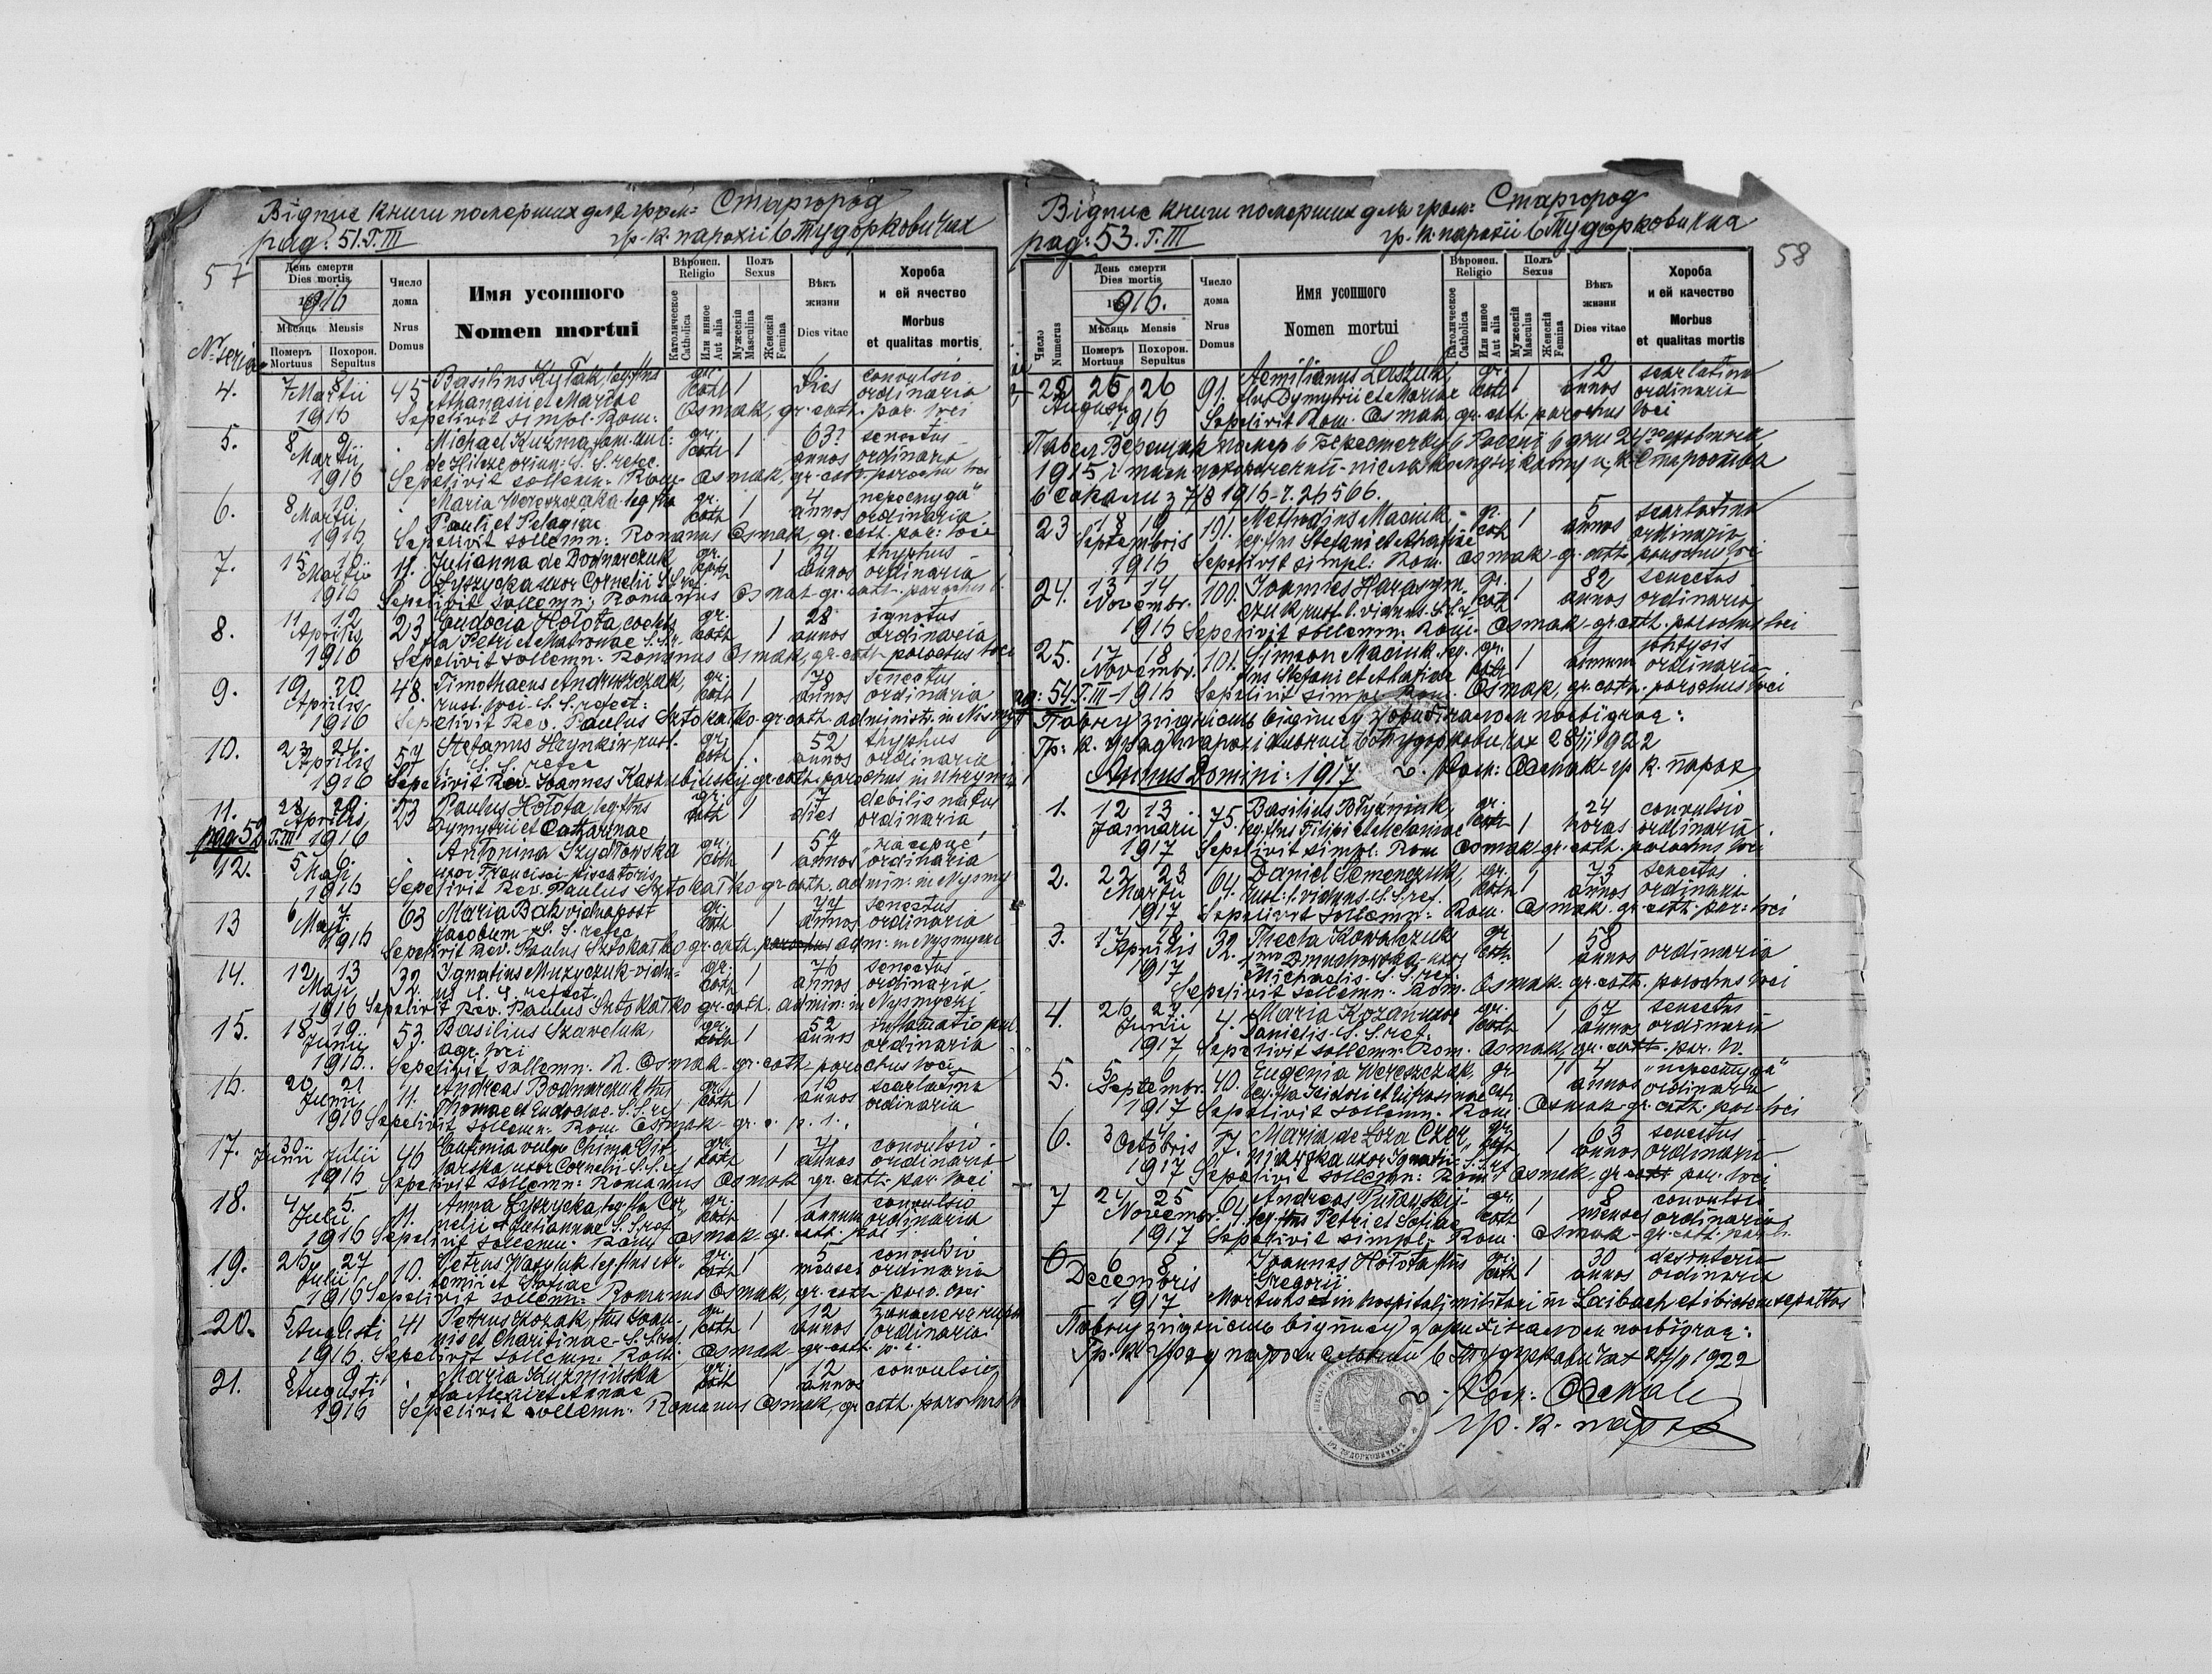 Відпис книги померших для гром: Старгород
pag: 51. T. III гр. к. парохії в Тудорковичах
57
День смерти
Dies mortis
1916
Мѣсяць Mensis
Померъ Mortuus
Похорон. Sepultus
Число дома
Nrus Domus
Имя усопшого
Nomen mortui
Вѣроисп.
Religio
Католическое
Catholica
Или инное
Aut alia
Полъ
Sexus
Мужескій
Masculina
Женскій
Femina
Вѣкъ жизни
Dies vitae
Хороба
и ей ячество
Morbus
et qualitas mortis
4. 7 8 Martii 45 Basilius Kytak, leg. flus gr. cath 1 dies convulsio
Athanasii et Mariae ordinaria
1916 Sepelivit simpl. Rom: Osmak, gr. cath. par. loci
5. 8 9 Martii Michael Kuzma gr. cath 1 63? annos senectus
de Hilcze oriun. S. S. refec. ordinaria
1916 Sepelivit sollemn: Rom. Osmak, gr. cath. parochus loci
6. 8 10 Martii Maria Wereszczaka leg. fla gr. cath 1 4 annos „перестуда“
Pauli et Pelagiae ordinaria
1916 Sepelivit sollemn: Romanus Osmak, gr. cath. par: loci
7. 15 16 Martii 11. Julianna de Bodnarczuk gr. cath 1 34 annos thyphus
Łyszycka uxor Cornelii S. S. ref. ordinaria
1916 Sepelivit sollemn: Romanus Osmak gr. cath. parochus l.
8. 11 12 Aprilis 23 Eudocia Hołota, coelebs gr. cath 1 28 annos ignotus
fla Petri et Matronae S. S. r. ordinaria
1916 Sepelivit sollemn: Romanus Osmak, gr. cath. parochus loci
9. 19 20 Aprilis 48. Timothaeus Andruszczak, gr. cath 1 78 annos senectus
rust. loci. S. S. refect: ordinaria
1916 Sepelivit Rev. Paulus Sztokałko gr. cath. administr. in Nismycz
10. 23 24. Aprilis 57 Stefanus Hrynkiw rust. gr. cath 1 52 annos thyphus
S. S. refec ordinaria
1916 Sepelivit Rev. Ioannes gr. cath. parochus in Uhrynów
11. 28 29. Aprilis 23 Paulus Hołota leg. flus gr. cath 1 17 dies debilis natus
Dymytrii et Catharinae ordinaria
pag. 52. T. III 1916
12. 5 6. Maji Antonina Szydłowska gr. cath 1 57 annos
uxor Francisci piscatoris ordinaria
1916 Sepelivit Rev. Paulus Sztokałko gr. cath. admin: in Nysmy
13 6 7. Maji 63 Maria Bak vidua post gr. cath 1 77 annos senectus
Jacobum S. S. refec ordinaria
1916 Sepelivit Rev. Paulus Sztokałko gr. cath. parochus adm: in Nysmycze
14. 12 13 Maji 32. Ignatius Muzyczuk vidu= gr. cath 1 76 annos senectus
us S. S. refect. ordinaria
1916 Sepelivit Rev. Paulus Sztokałko gr. cath. admin: in Nysmyczi
15. 18 19. Junii 53. Basilius Szawełuk, gr. cath 1 52 annos inflamatio pul.
agr. loci ordinaria
1916. Sepelivit sollemn: R. Osmak gr. cath. parochus loci
16. 20 21 Junii 11. Andreas Bodnarczuk flus gr. cath 1 16 annos scarlatina
Thomae et Eudociae. S. S. re ordinaria
1916 Sepelivit sollemn: Rom. Osmak gr. c. p. l.
17. 30 Junii Julii 46 Eufimia vulgo Chima Git gr. cath 1 annos convulsio
larska, uxor Cornelii S. S. ref ordinaria
1916 Sepelivit sollemn: Romanus Osmak gr. cath. par. loci
18. 4 5. Julii 11. Anna Łyszycka leg. fla Cor gr. cath 1 1 annum convulsio
nelii et Juliannae S. S. ref ordinaria
1916 Sepelivit sollemn. Rom. Osmak gr. cath. par l.
19. 25 27 Julii 10. Petrus Wasyluk leg. flus gr. cath 1 5 menses convulsio
et Sofiae ordinaria
1916 Sepelivit sollemn: Romanus Osmak, gr. cath. paro. loci
20. 5 6 Augusti 41 Petrus Kozak, flus Ioan gr. cath 1 12 annos
nis et Charitinae S. S. ref. ordinaria
1916. Sepelivit sollemn: Rom: Osmak gr. cath. p. l.
21. 8 9 Augusti Maria Kuzmińska gr. cath 1 12 annos convulsio
fla Alexii et Annae
1916 Sepelivit sollemn: Romanus Osmak, gr cath. parochus lo
Відпис книги померших для гром: Старгород
pag: 53. T. III гр. к. парохії в Тудорковичах
58
Число
Numerus
День смерти
Dies mortis
1916.
Мѣсяць Mensis
Померъ Mortuus
Похорон. Sepultus
Число дома
Nrus Domus
Имя усопшого
Nomen mortui
Вѣроисп.
Religio
Католическое
Catholica
Или инное
Aut alia
Полъ
Sexus
Мужескій
Masculus
Женскій
Femina
Вѣкъ жизни
Dies vitae
Хороба
и ей качество
Morbus
et qualitas mortis
22 25 26 Augusti 91. Aemilianus Laszuk, gr. cath 1 12 annos scarlatina
flus Dymytrii et Mariae ordinaria
1916 Sepelivit Rom. Osmak gr. cath. parochus loci
Павел Верещак помер в Берестечку в Росиї в дни 24го жовтня
1915 і там похоронений Староства
в Сокали з 7/8 1916 ч. 26566.
23 18 19 Septembris 191. Methodius Maciuk gr. cath 1 5 annos scarlatina
leg. flus Stefani et ordinaria
1916 Sepelivit simpl: Rom. Osmak gr. cath parochus loci
24. 13 14 Novembr. 100. Ioannes Harasym= gr. cath 1 82 annos senectus
czuk rust. l. viduus. S. S. r ordinaria
1916 Sepelivit sollemn: Rom. Osmak gr cath. parochus loci
25. 17 18 Novembr. 101. Simeon Maciuk leg. gr. cath 1 1 annum phtysis
flus Stefani et ordinaria
pag: 54 T. III 1916 Sepelivit simpl. Rom. Osmak, gr. cath. parochus loci
Повну згідність відпису з оригіналом посвідчає:
Гр. к. Уряд парохіяльний в Тудорковичах 28/II 1922
Annus Domini: 1917 о. Ром: Осмак гр. к. парох
1. 12 13 Januarii 75. Basilius gr. cath 1 24 horas convulsio
leg. flus Filipi et Melaniae ordinaria
1917 Sepelivit simpl: Rom Osmak gr. cath. parochus loci
2. 22 23 Martii 64. Daniel Semenczuk, gr. cath 1 73 annos senectus
rust: l. viduus. S. S. ref. ordinaria
1917 Sepelivit sollemn: Rom. Osmak. gr. cath. par: loci
3. 17 18 Aprilis 32. Thecla Kowalczuk gr. cath. 1 58 annos ordinaria
Michaelis. S. S. ref.
1917 Sepelivit sollemn: Rom. Osmak. gr. cath. parochus loci
4. 26 27 Junii 4. Maria Kozak uxor gr. cath 1 67 annos senectus
Danielis. S. S. ref. ordinaria
1917 Sepelivit sollemn: Rom. Osmak, gr. cath. par. lo.
5. 5 6 Septembr. 40. Eugenia Wereszczak gr. cath 1 4 annos „перестуда“
leg. fla Isidori et Eufrosinae ordinaria
1917 Sepelivit sollemn. Rom. Osmak gr. cath. par. loci
6. 3 4 Octobris 77. Maria de Łoza Czer gr. cath 1 63 annos senectus
niawska uxor Ignatii S. S. rf ordinaria
1917 Sepelivit sollemn: Rom: Osmak, gr cath par. loci
7 24 25 Novembr. 64. Andreas Puławskij gr. cath 1 8 menses convulsio
leg. flus Petri et Sofiae ordinaria
1917 Sepelivit simpl: Rom. Osmak gr. cath. par. l.
6 6 8 Decembris Ioannes Hołota flus gr. cath 1 30 annos desenteria
Gregorii ordinaria
1917 Mortuus in hospitali militari in Laibach et ibidem sepultus
Повну згідність відпису з оригіналом посвідчає:
Гр. к. Уряд парохіяльний в Тудорковичах 27/II 1922
о. Ром: Осмак
гр. к. парох